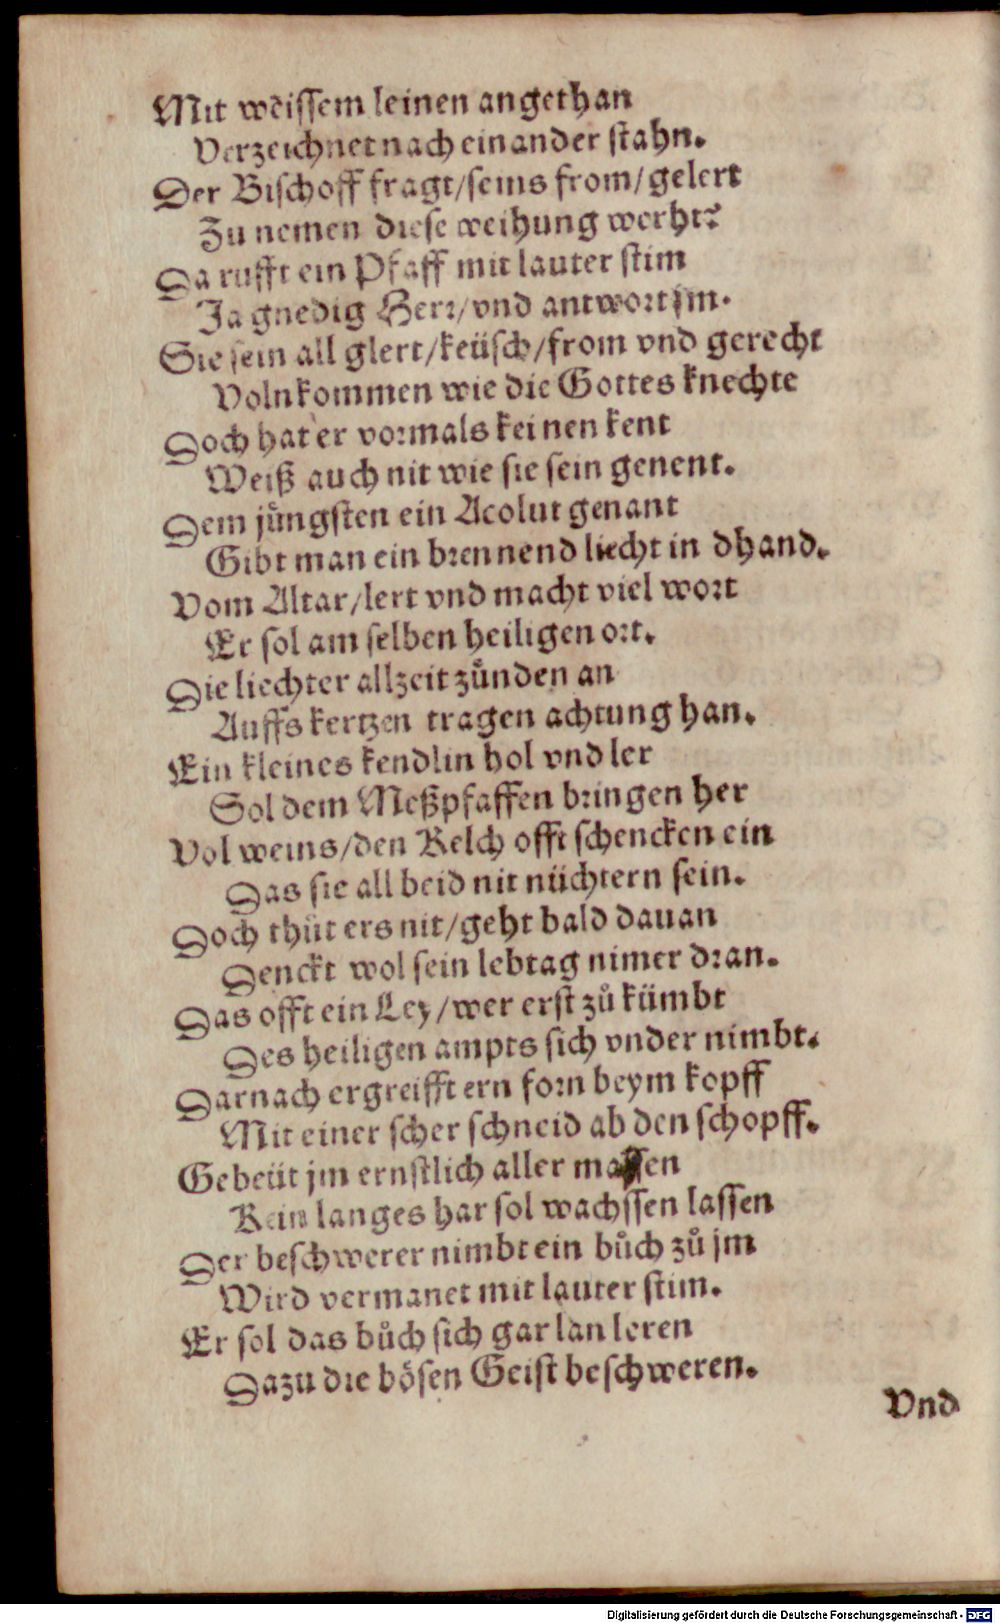 Mit weissem leinen angethan
Verzeichnet nach einander stahn.
Der Bischoff fragt/seins from/gelert
Zu nemen diese weihung werht?
Da rufft ein Pfaff mit lauter stim
Ja gnedig Herr/vnd antwort jm.
Sie sein all glert/keüsch/from vnd gerecht
Volnkommen wie die Gottes knechte
Doch hat er vormals keinen kent
Weiß auch nit wie sie sein genent.
Dem jüngsten ein Acolut genant
Gibt man ein brennend liecht in dhand.
Vom Altar/lert vnd macht viel wort
Er sol am selben heiligen ort.
Die liechter allzeit zünden an
Auffs kertzen tragen achtung han.
Ein kleines kendlin hol vnd ler
Sol dem Meßpfaffen bringen her
Vol weins/den Kelch offt schencken ein
Das sie all beid nit nüchtern sein.
Doch thüt ers nit/geht bald dauan
Denckt wol sein lebtag nimer dran.
Das offt ein Ley/wer erst zů kümbt
Des heiligen ampts sich vnder nimbt.
Darnach ergreifft ern forn beym kopff
Mit einer scher schneid ab den schopff.
Gebeüt jm ernstlich aller massen
Kein langes har sol wachssen lassen
Der beschwerer nimbt ein bůch zů jm
Wird vermanet mit lauter stim.
Er sol das bůch sich gar lan leren
Dazu die bösen Geist beschweren.
Vnd
Digitalisierung gefördert durch die Deutsche Forschungsgemeinschaft - DFG